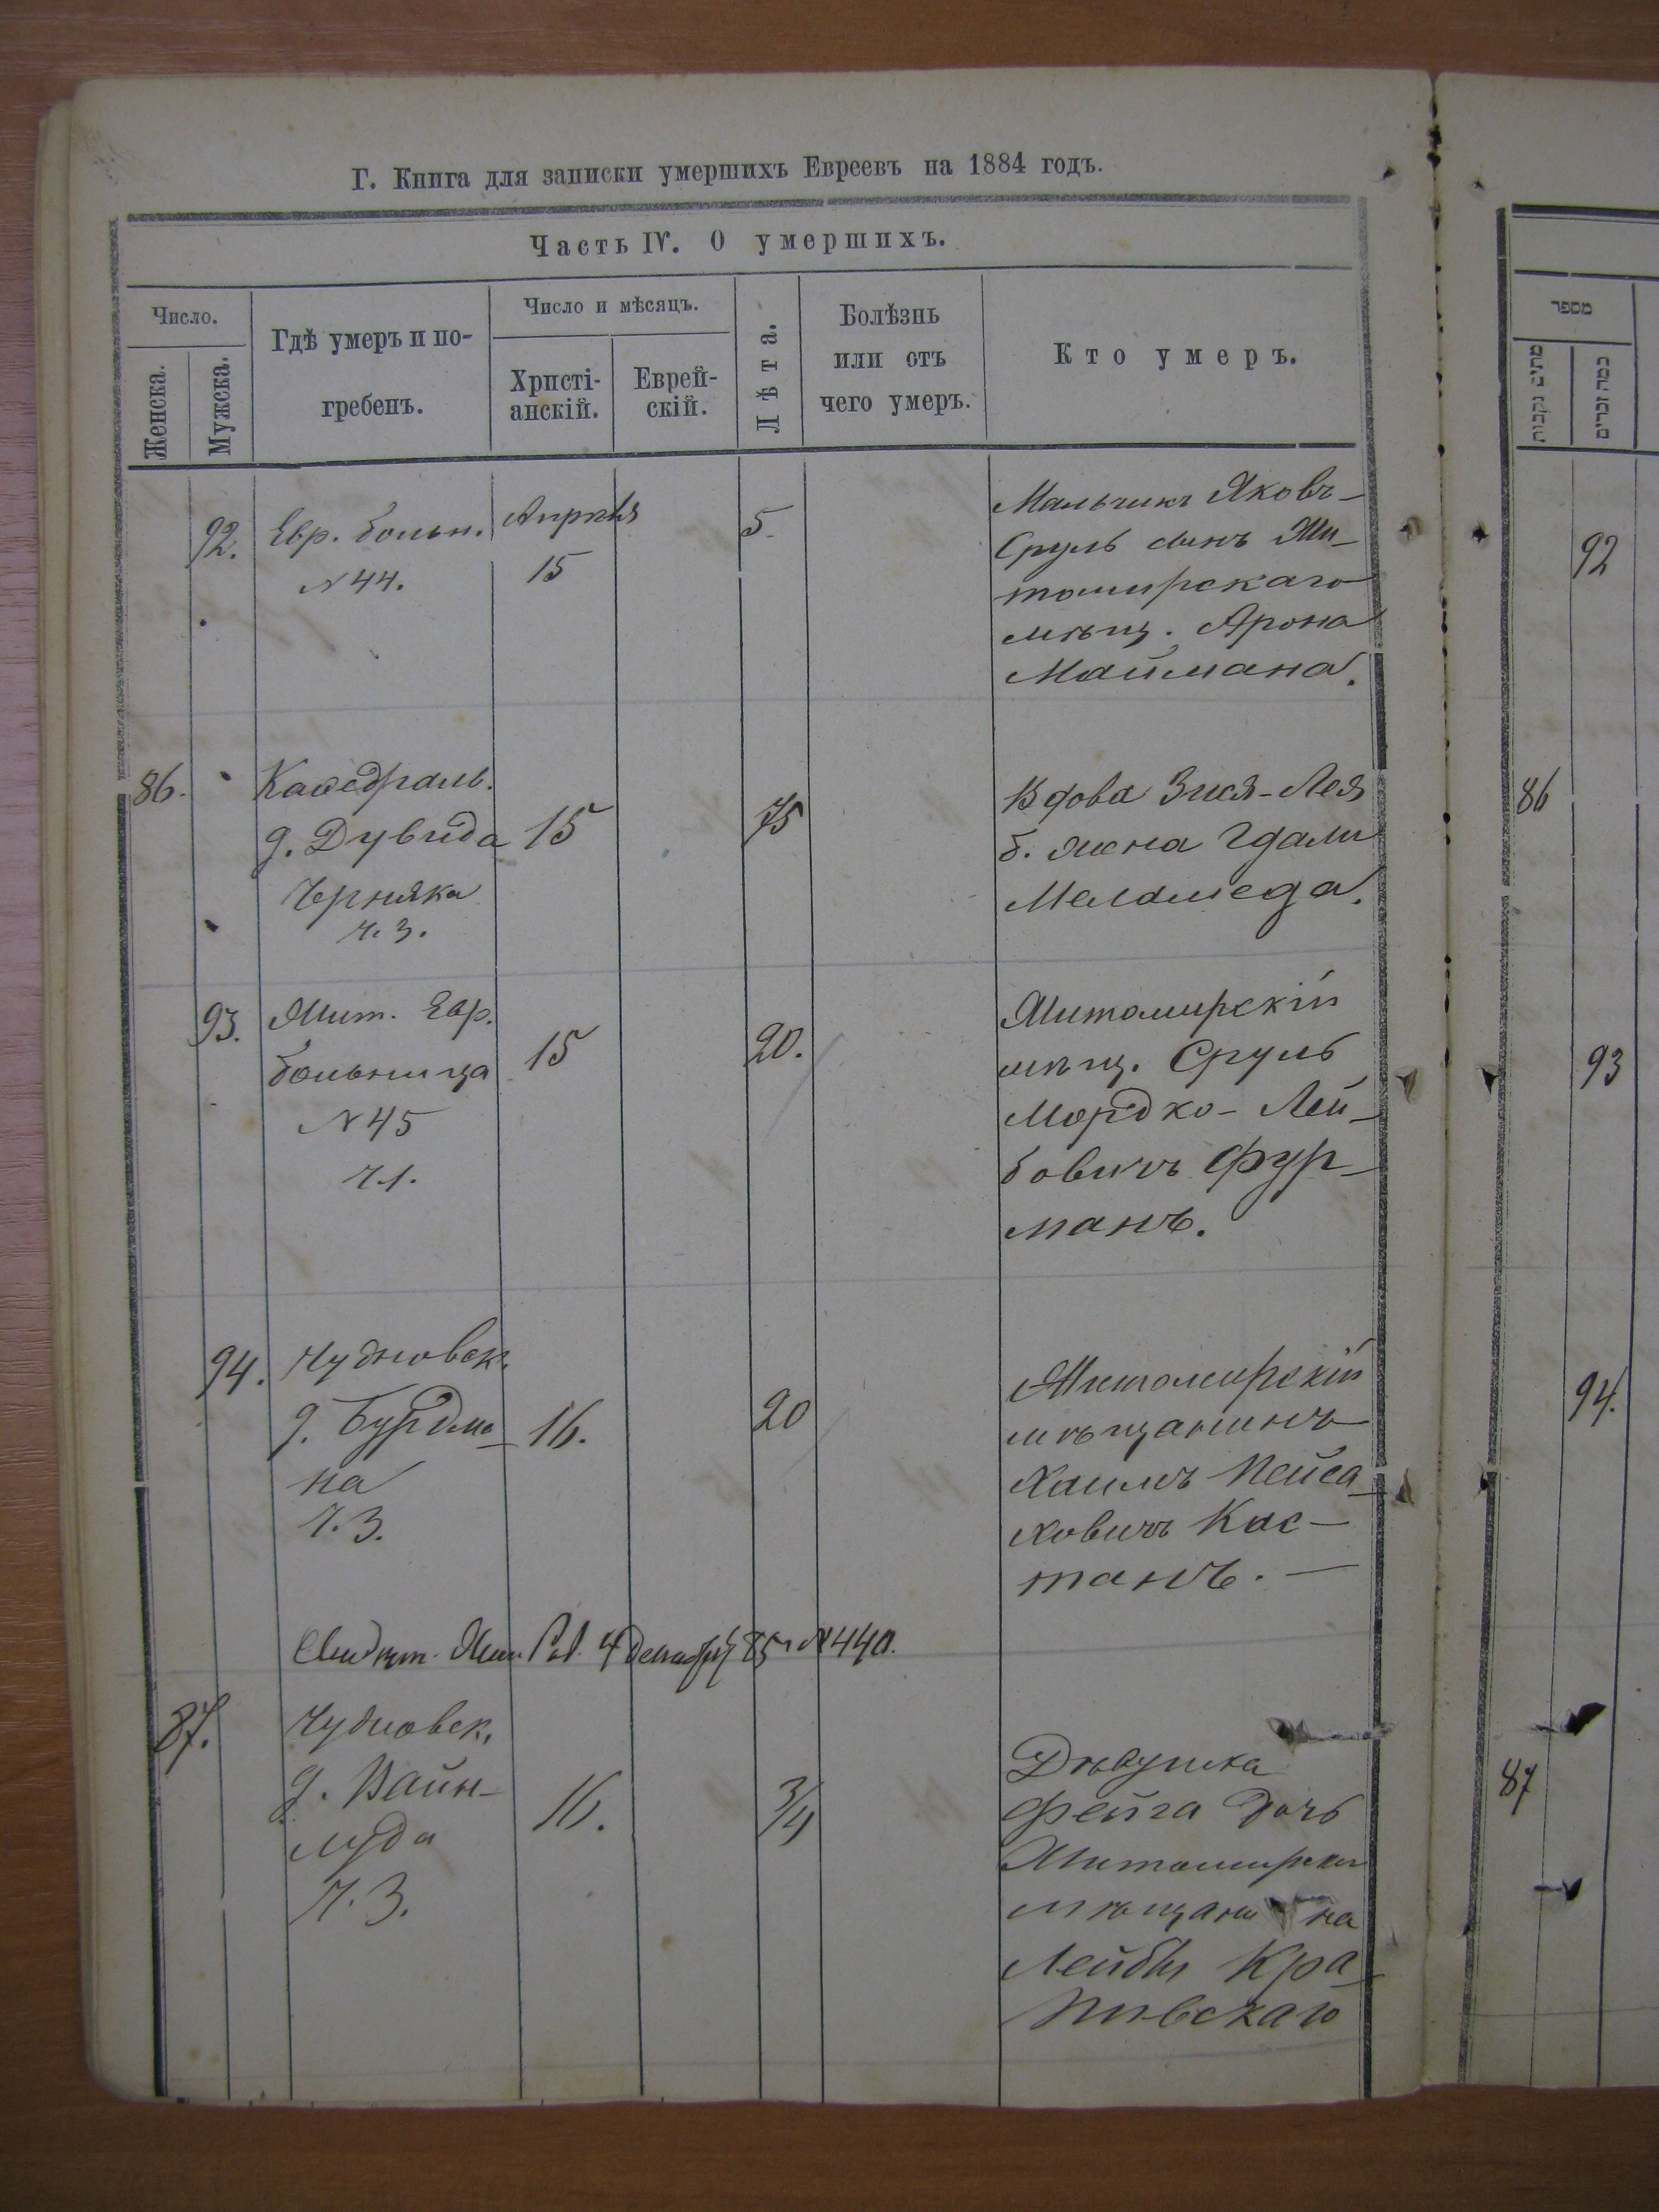 Г. Книга для записки умершихъ Евреевъ на 1884 годъ.
Часть IV. О умершихъ.
Число.
Женска.
Мужска.
Гдѣ умеръ и по-
гребенъ.
Число и мѣсяцъ.
Христі-
анскій.
Еврей-
скій.
Лѣта.
Болѣзнь
или отъ
чего умеръ.
Кто умеръ.
92.
Евр. больн.
№ 44.
Апрѣля
15
5
Мальчикъ Яковъ-
Сруль сынъ Жи-
томирскаго
мѣщ. Арона
Маймана.
86.
Каѳедраль.
д. Дувида
Черняка
ч. 3.
15
75
Вдова Зися-Лея
б. жена Гдали
Меламеда.
93.
Жит. Евр.
больница
№ 45
ч. 1.
15
20.
Житомирскій
мѣщ. Сруль
Мордко-Лей-
бовичъ Фур-
манъ.
94.
Чудновск.
д. Бурдма-
на
ч. 3.
16.
20
Житомирскій
мѣщанинъ
Хаимъ Пейса-
ховичъ Кас-
танъ. —
4 Декабря 85 г. № 440.
87.
Чудновск.
д. Вайн-
луда
ч. 3.
16.
3/4
Дѣвушка
Фейга дочь
Житомирскаго
мѣщанина
Лейбы Кра-
пивскаго
מספר
מתים נקבות
כמה זכרים
92
86
93
94.
87